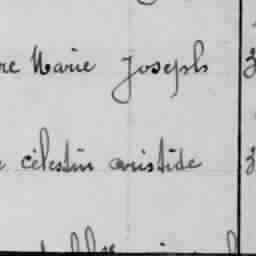 re Marie Joseph 3
e célestin aristide 3